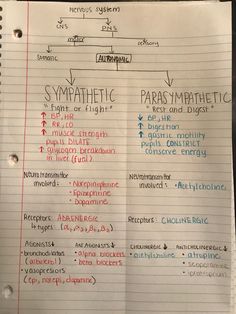 nervous system
CNS
PNS
motor
sensory
somatic
AUTONOMIC
SYMPATHETIC
"Fight or flight"
↑ BP, HR
↑ RR, CO
↑ muscle strength
pupils DILATE
↑ glycogen breakdown
in liver (fuel)
Neurotransmitter
involved:
• Norepinephrine
• Epinephrine
• Dopamine
Receptors: ADRENERGIC
4 types
AGONISTS
• bronchodilators
(albuterol)
• vasopressors
(epi, norepi, dopamine)
ANTAGONISTS
• alpha blockers
• beta blockers
PARASYMPATHETIC
"Rest and Digest"
↓ BP, HR
↑ digestion
↑ gastric motility
pupils CONSTRICT
conserve energy
Neurotransmitter
involved: • Acetylcholine
Receptors: CHOLINERGIC
CHOLINERGIC
• acetylcholine
ANTICHOLINERGIC
• atropine
• scopolamine